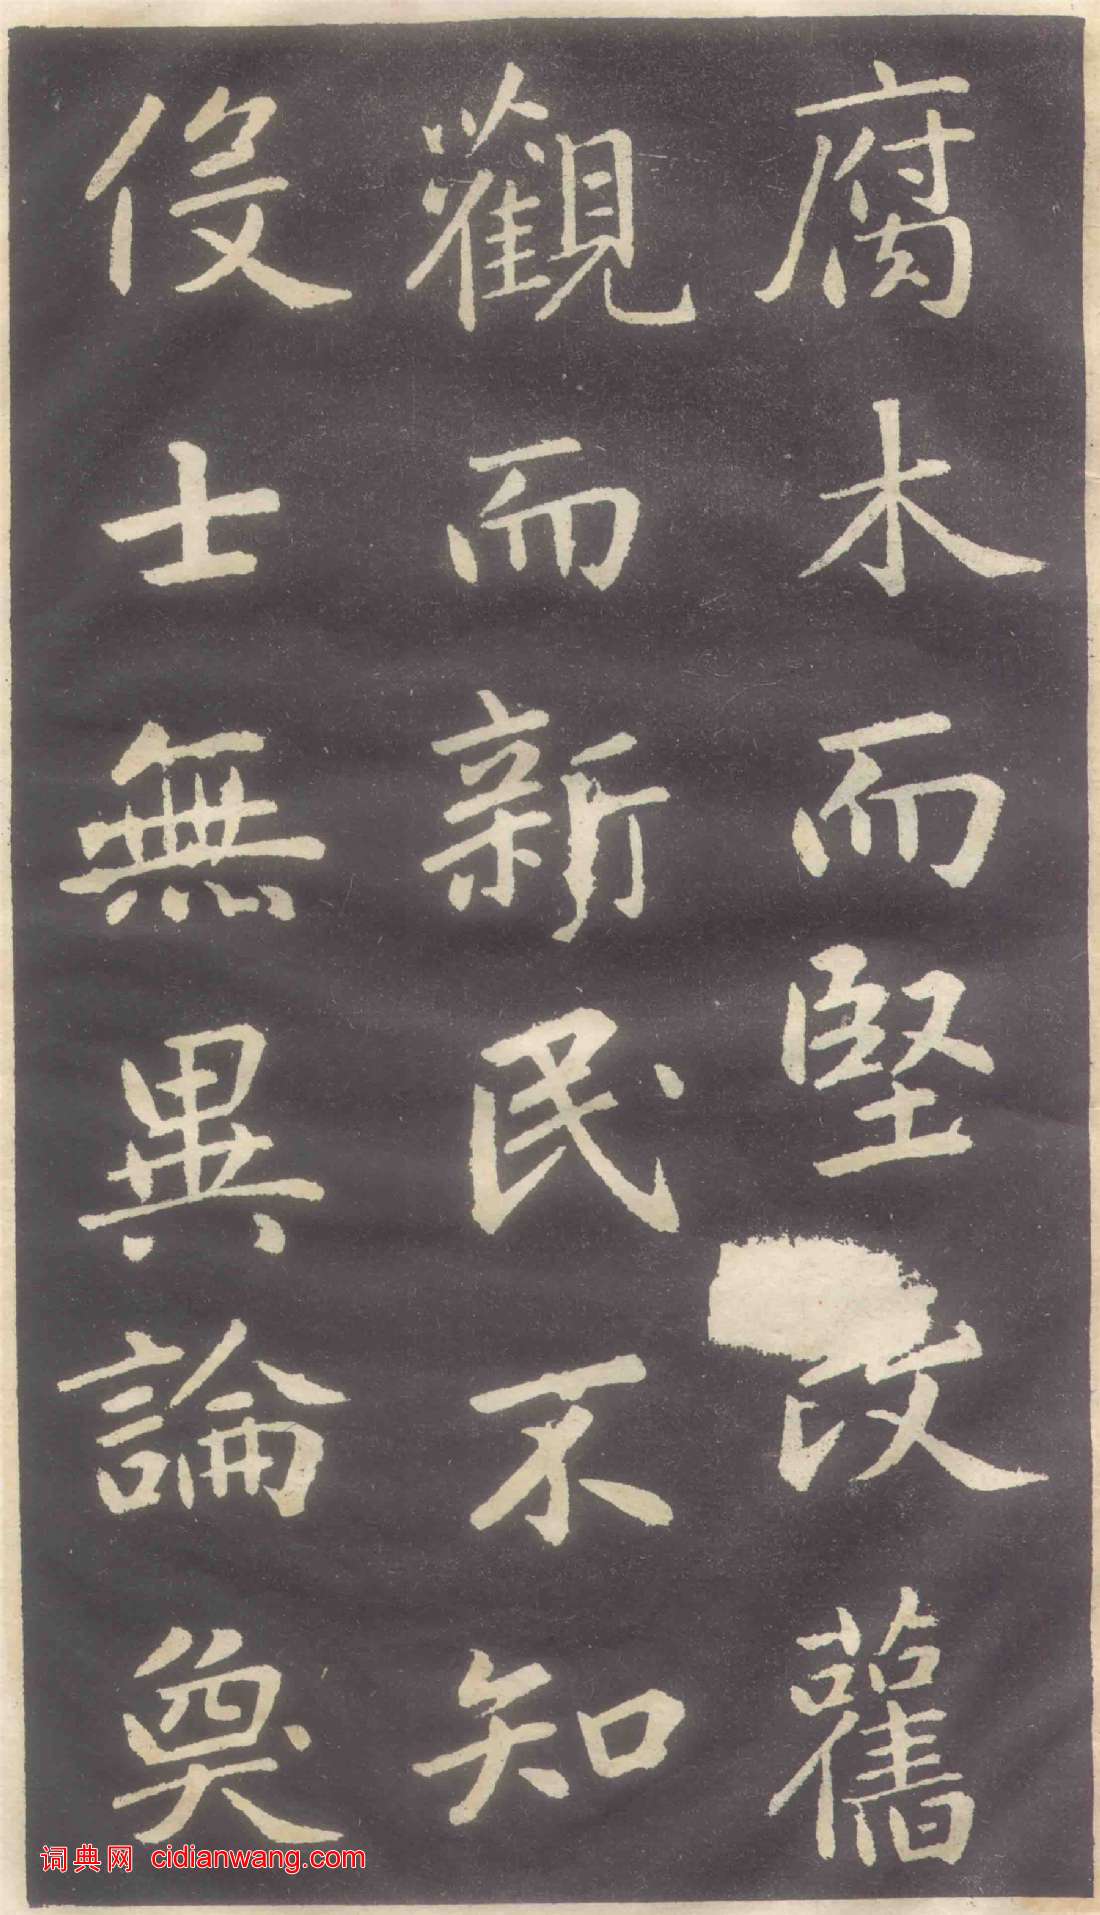 腐木而堅改舊
觀而新民不知
伇士無異論奐
词典网 cidianwang.com